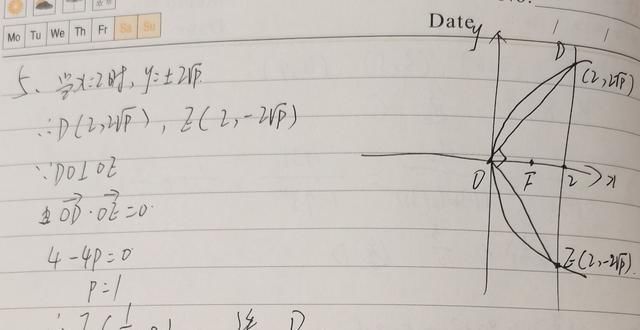 Mo Tu We Th Fr Sa Su
Date
5、当x=2时,y=±2√p
∴D(2,2√p),E(2,-2√p)
∵DO⊥OE
OD·OE=0
4-4p=0
p=1
y
D
(2,2√p)
O
F
2
x
E(2,-2√p)